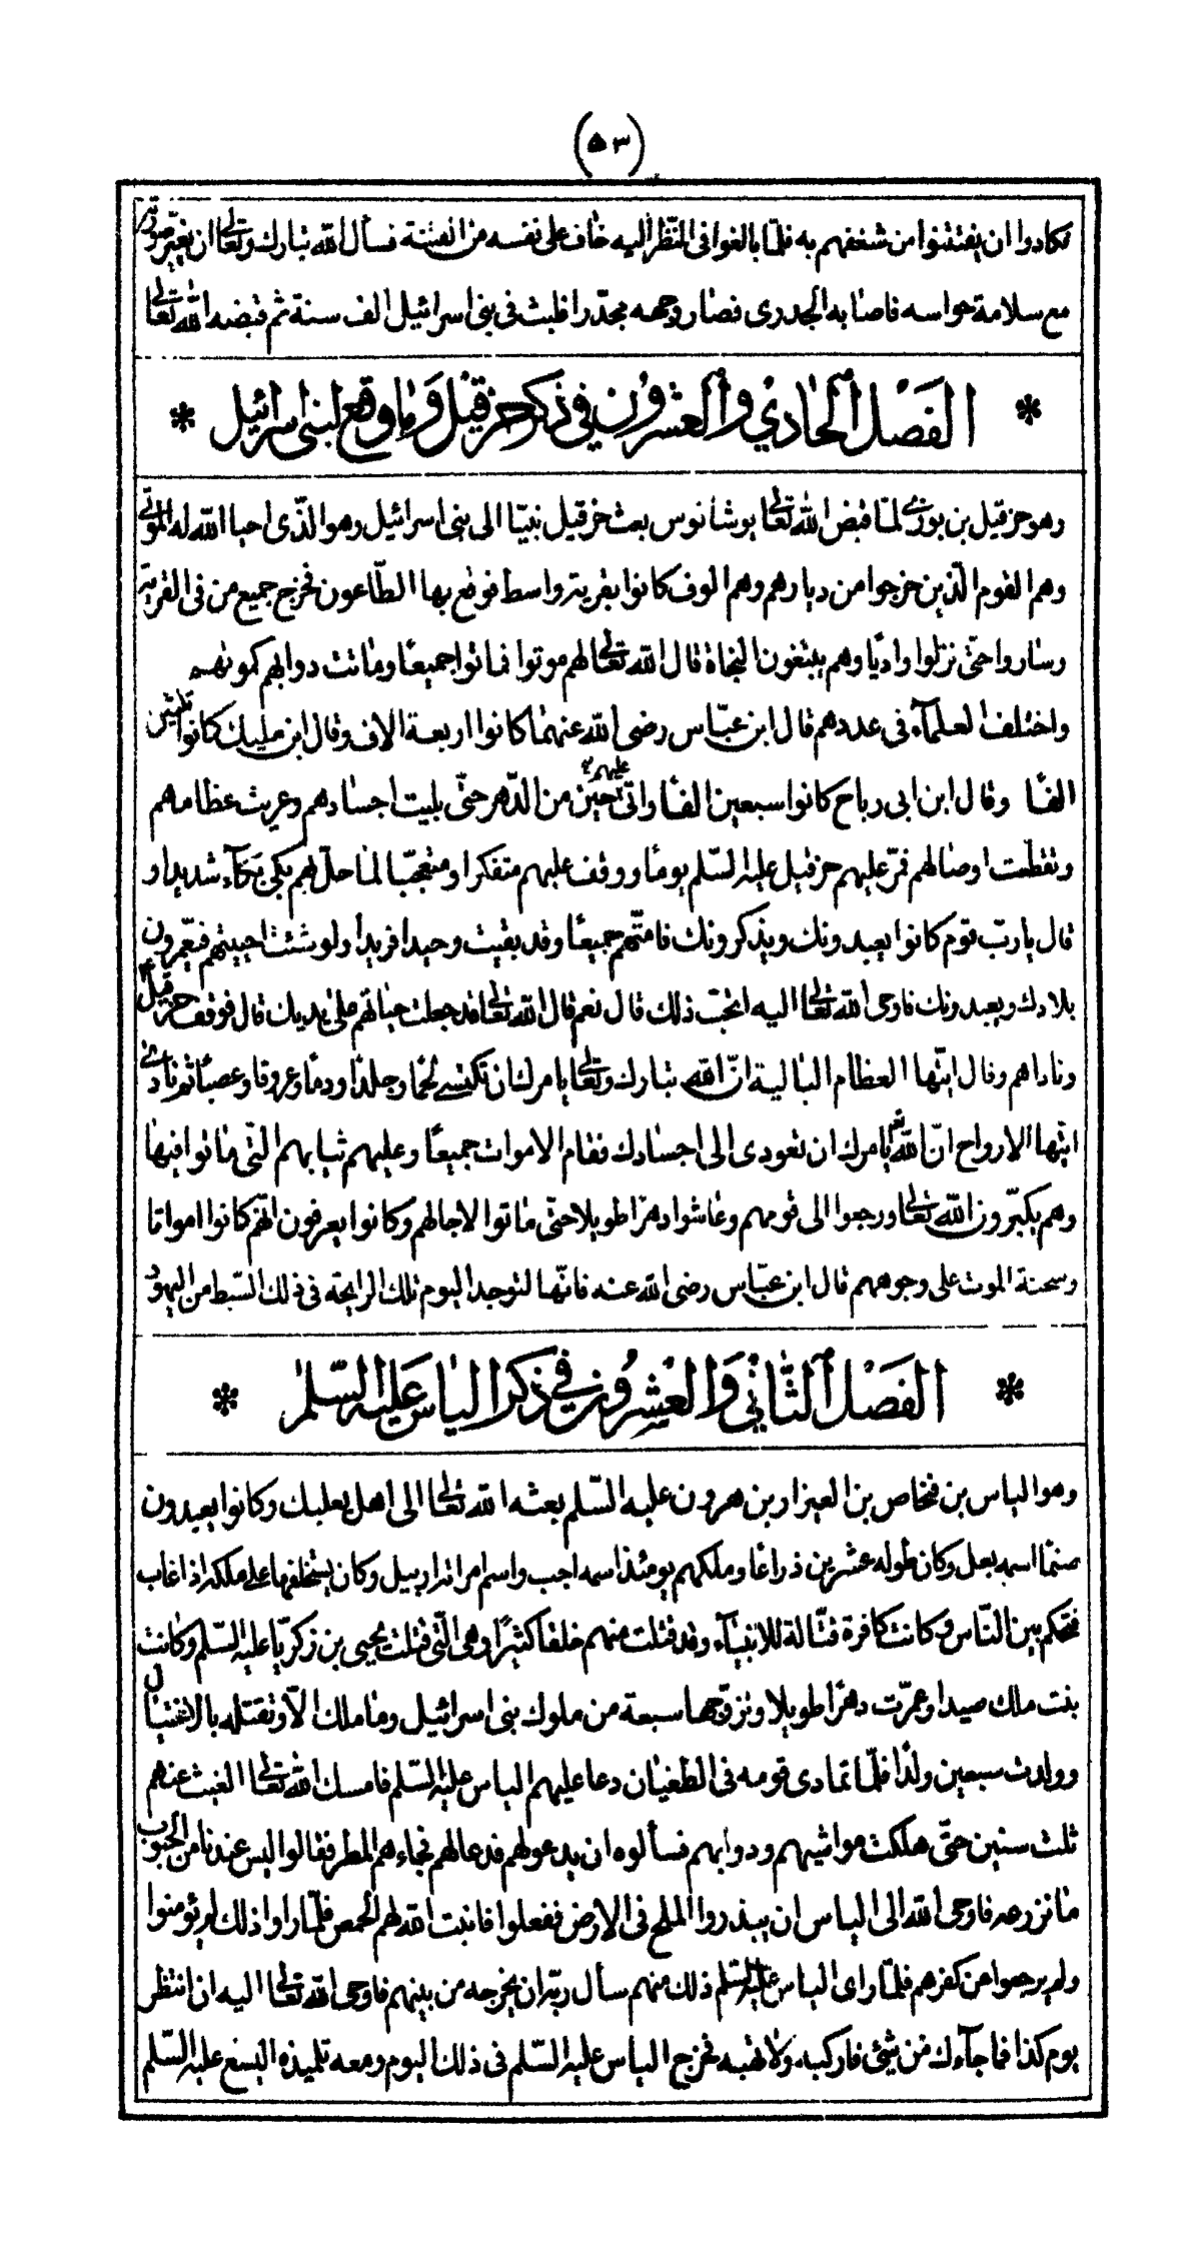 (٥٣)
فكادوا ان يفتتنوا من شغفهم به فلمّا بالغوا فى النّظر اليه خاف على نفسه من الفتنة فسأل الله تبارك وتعالى ان يغيّر صورته
مع سلامة حواسه فاصابه الجدرى فصار وجهه مجدّرا فلبث فى بنى اسرائيل الف سنة ثم قبضه الله تعالى
* الفصل الحادي والعشرون في ذكر حزقيل وما وقع لبنى اسرائيل *
وهو حزقيل بن بوزى لمّا قبض الله تعالى يوشانوس بعث حزقيل نبيّا الى بنى اسرائيل وهو الذّى احيا الله له الموتى
وهم القوم الّذين خرجوا من ديارهم وهم الوف كانوا بقرية واسط فوقع بها الطّاعون فخرج جميع من فى القرية
وساروا حتّى نزلوا واديًا وهم يبتغون النجاة قال الله تعالى لهم موتوا فماتوا جميعًا وماتت دوابهم كموتهم
واختلف العلمآء فى عددهم قال ابن عبّاس رضى الله عنهما كانوا اربعة الاف وقال ابن مليك كانوا ثلثين
الفًا وقال ابن ابى رباح كانوا سبعين الفًا واتى عليهم حين من الدّهر حتّى بليت اجسادهم وعريت عظامهم
وتقطّعت اوصالهم فمرّ عليهم حزقيل عليه السّلم يومًا ووقف عليهم متفكرا ومتعجّبا لما حلّ لهم بكى بكآء شديدا و
قال يا ربّ قوم كانوا يعبدونك ويذكرونك فامتّهم جميعًا وقد بقيت وحيدا فريدا ولو شئت احييتهم فيعّمرون
بلادك ويعبدونك فاوحى الله تعالى اليه اتحبّ ذلك قال نعم قال الله تعالى قد جعلت حياتهم على يديك قال فوقف حزقيل
وناداهم وقال ايّتها العظام البالية انّ الله تبارك وتعالى يامرك ان تكتسى لحمًا وجلدًا ودمًا وعروقا وعصبًا ثم نادى
ايتّها الارواح انّ الله يامرك ان تعودى الى اجسادك فقام الاموات جميعًا وعليهم ثيابهم التّى ماتوا فيها
وهم يكبّرون الله تعالى ورجعوا الى قومهم وعاشوا دهرًا طويلا حتّى ماتوا لاجالهم وكانوا يعرفون انّهم كانوا امواتا
وسحنة الموت على وجوههم قال ابن عبّاس رضى الله عنه فانّها لتوجد اليوم تلك الرايحة فى ذلك السّبط من اليهود
* الفصل الثّاني والعشرون في ذكر الياس عليه السّلم *
وهو الياس بن فنحاص بن العيزار بن هرون عليه السّلم بعثه الله تعالى الى اهل بعلبك وكانوا يعبدون
صنمًا اسمه بعل وكان طوله عشرين ذراعًا وملكهم يومئذ اسمه اجب واسم امراته اربيل وكان يستخلفها على ملكه اذا غاب
فتحكم بين النّاس وكانت كافرة قتّالة للانبيآء وقد قتلت منهم خلقا كثيرًا وهى التّى قتلت يحيى بن زكريّا عليه السّلم وكانت
بنت ملك صيدا وعمرت دهرًا طويلا وتزوّجها سبعة من ملوك بنى اسرائيل وما ملك الّا وتقتله بالاغتيال
وولدت سبعين ولدًا فلمّا تمادى قومه فى الطغيان دعا عليهم الياس عليه السّلم فامسك الله تعالى الغيث عنهم
ثلث سنين حتّى هلكت مواشيهم ودوابهم فسألوه ان يدعو لهم فدعا لهم فجاءهم المطر فقالوا ليس عندنا من الحبوب
ما نزرعه فاوحى الله الى الياس ان يبذروا الملح فى الارض ففعلوا فانبت الله لهم الحمص فلمّا راوا ذلك لم يؤمنوا
ولم يرجعوا عن كفرهم فلمّا راى الياس عليه السّلم ذلك منهم سأل ربّه ان يخرجه من بينهم فاوحى الله تعالى اليه ان انتظر
يوم كذا فما جآءك من شئ فاركبه ولا تهبه فخرج الياس عليه السّلم فى ذلك اليوم ومعه تلميذه اليسع عليه السّلم